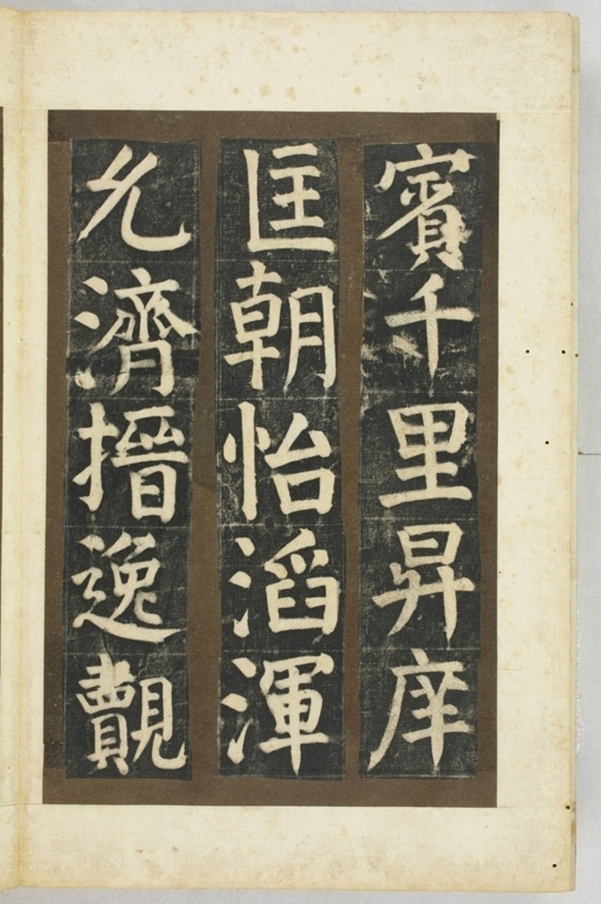 賓千里昇庠
匡朝怡滔渾
允濟搢逸覿